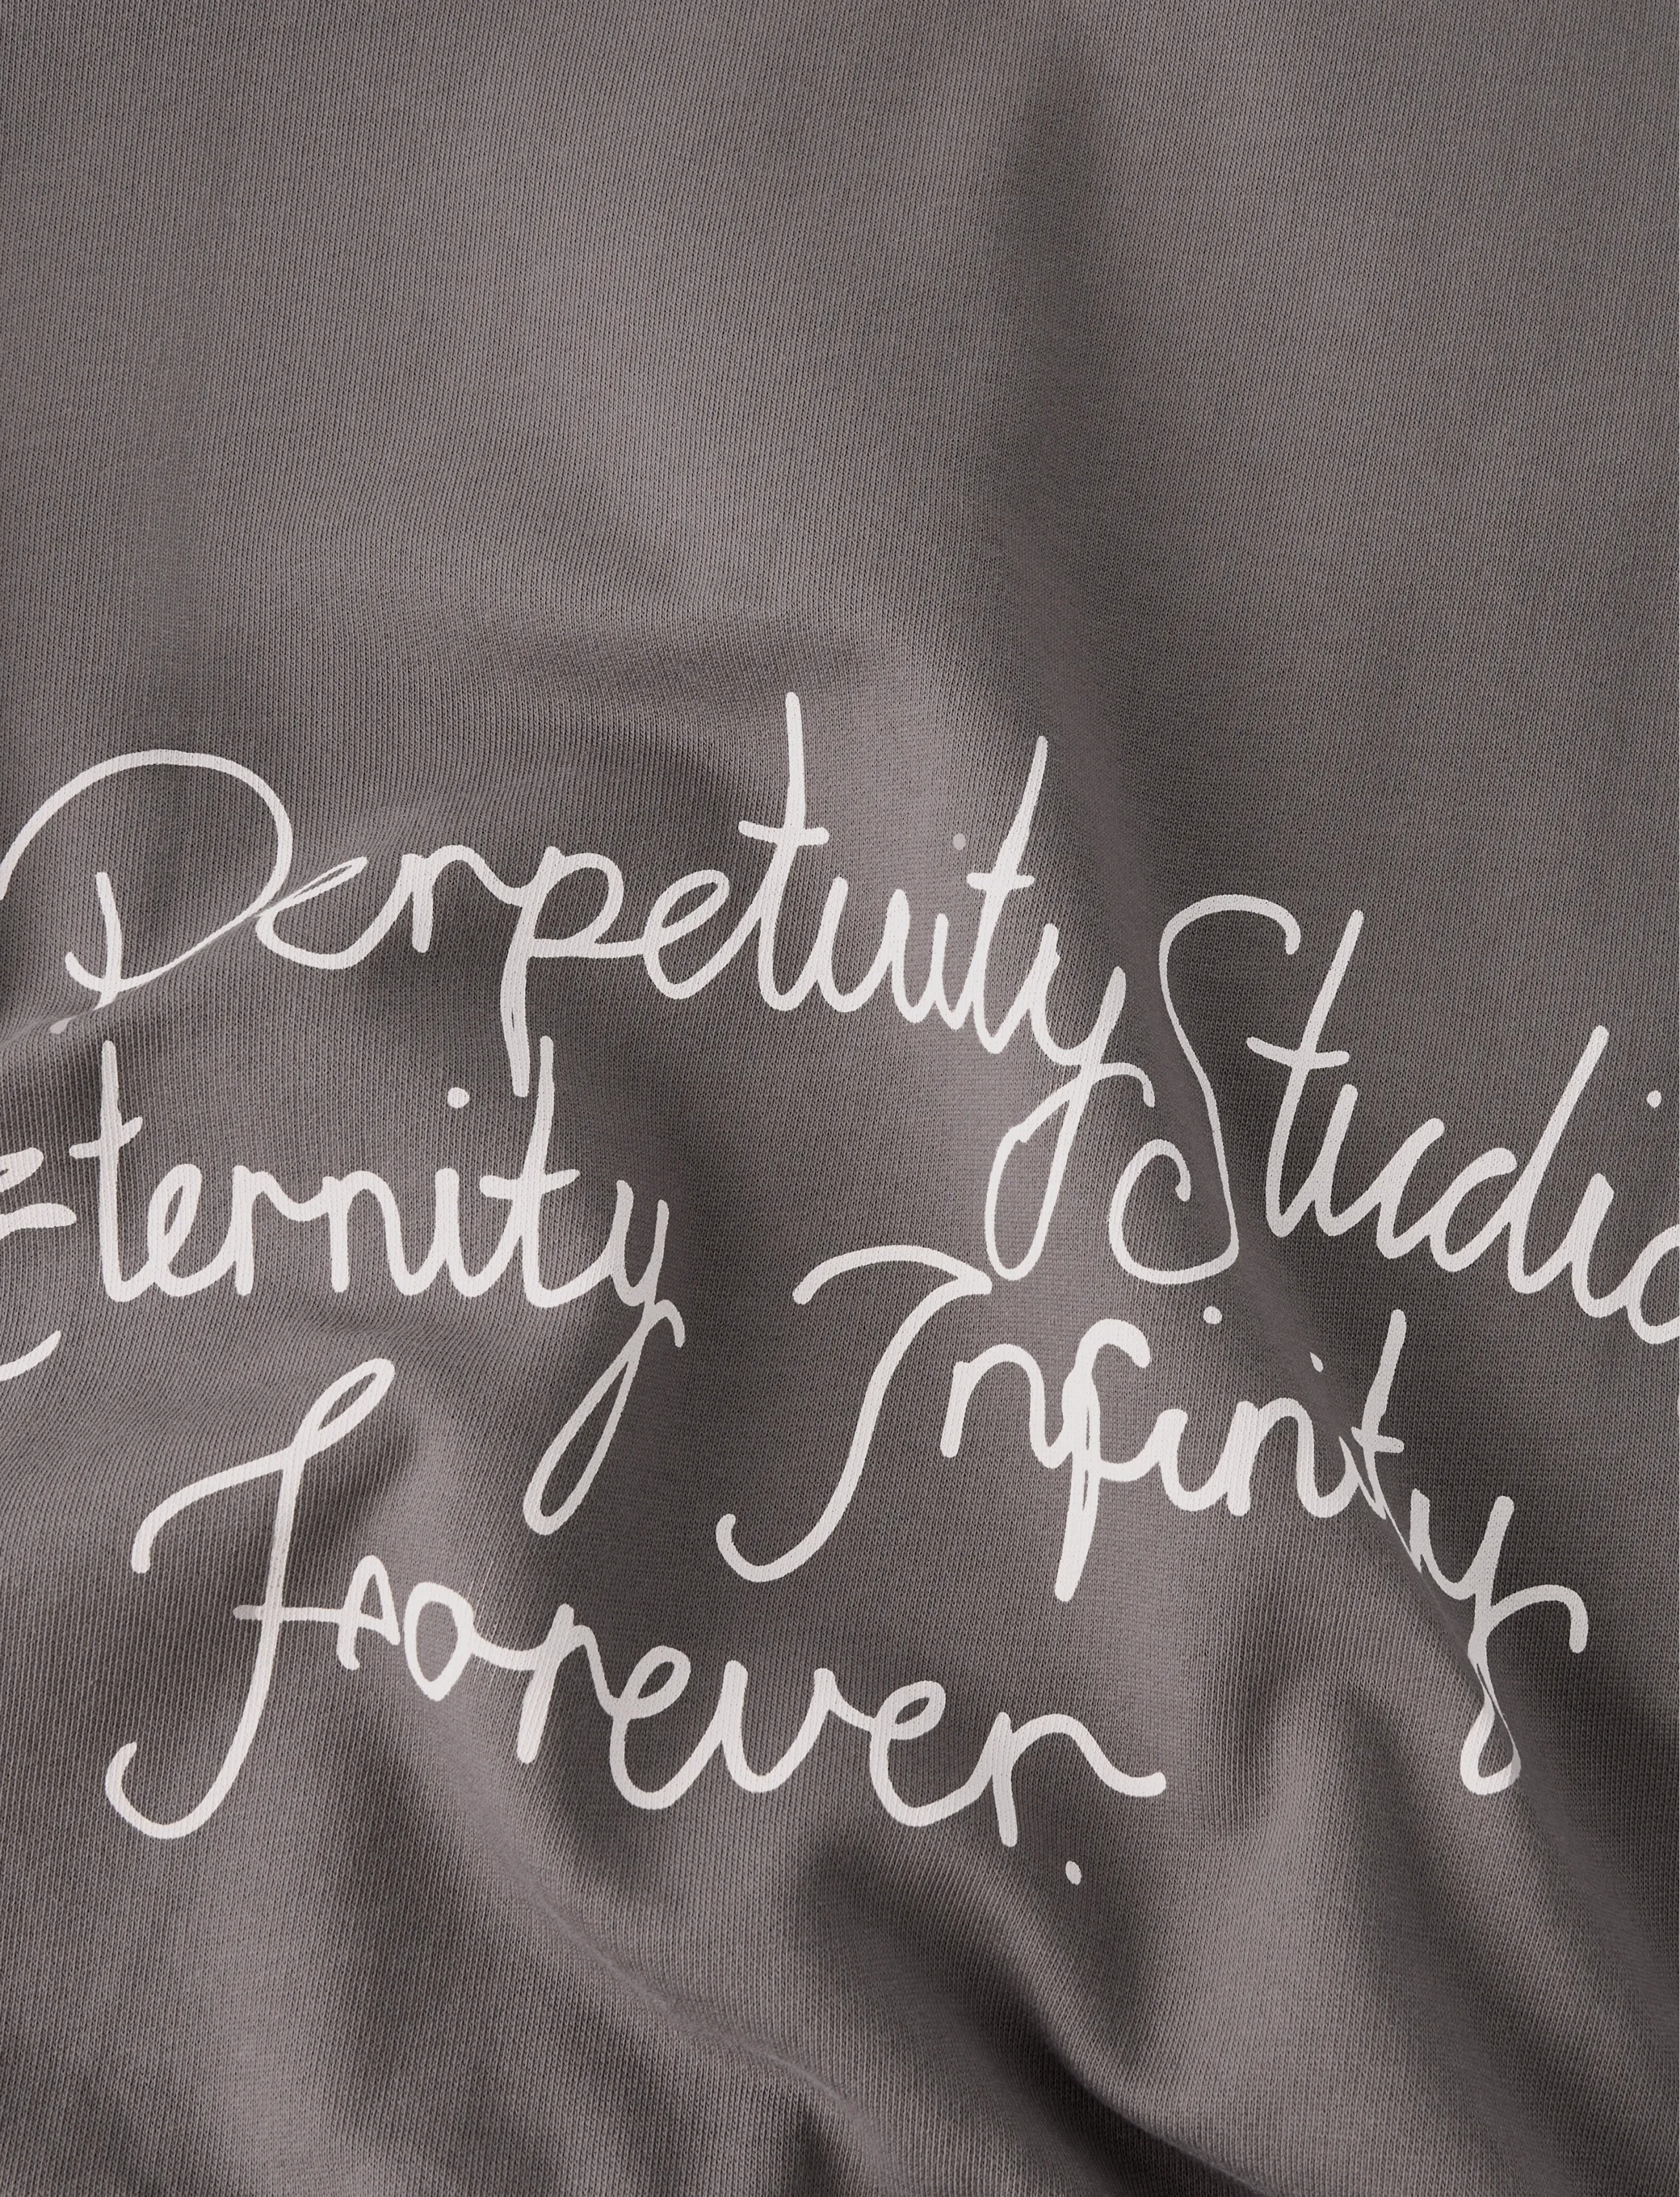 Perpetuity Studio
Eternity Infinity
Forever.